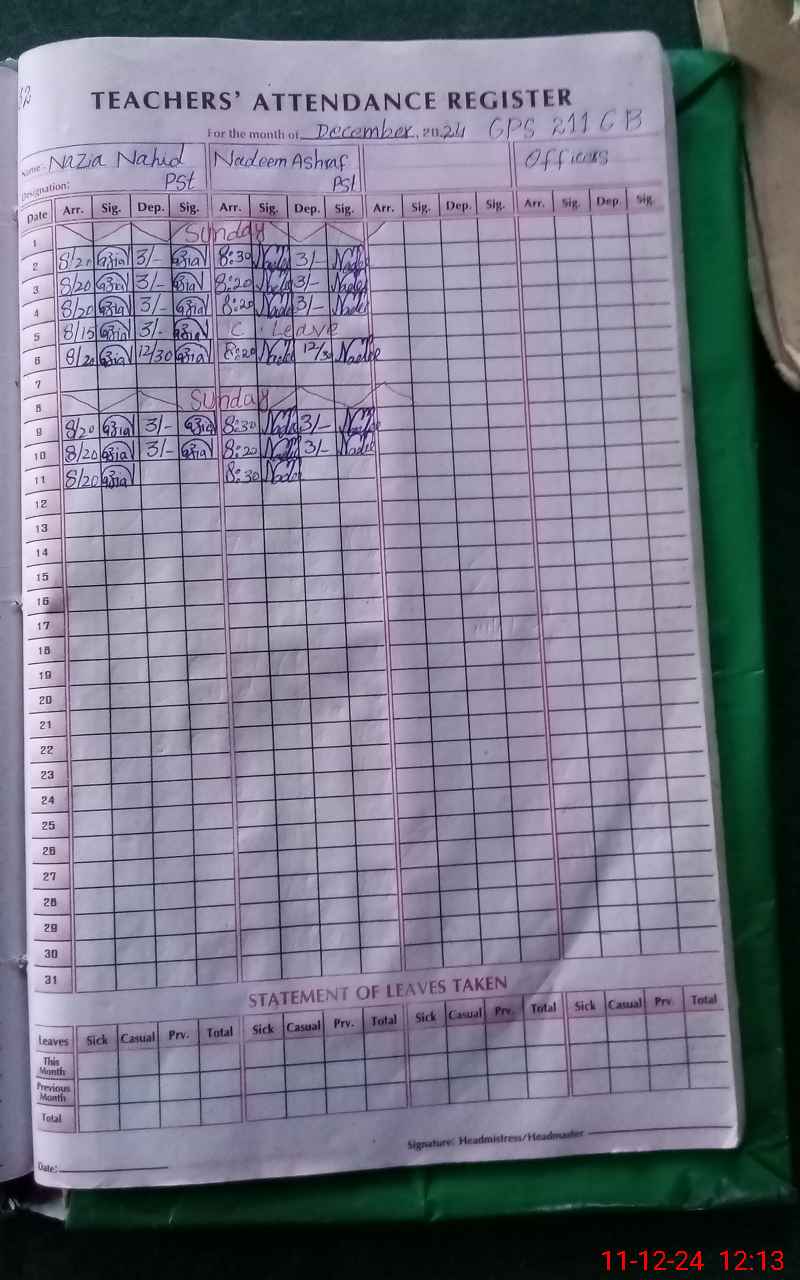 TEACHERS' ATTENDANCE REGISTER
For the month of December, 2024 GPS 211 GB
Name: Nazia Nahid Nadeem Ashraf Officers
Designation: PST PST
Date Arr. Sig. Dep. Sig. Arr. Sig. Dep. Sig. Arr. Sig. Dep. Sig. Arr. Sig. Dep Sig.
1 Sunday
2 8/20 3/- 8:30 3/-
3 8/20 3/- 8:20 3/-
4 8/20 3/- 8:20 3/-
5 8/15 3/- C. Leave
6 8/20 12/30 8:20 12/30
7
8 Sunday
9 8/20 3/- 8:30 3/-
10 8/20 3/- 8:20 3/-
11 8/20 8:30
12
13
14
15
16
17
18
19
20
21
22
23
24
25
26
27
28
29
30
31
STATEMENT OF LEAVES TAKEN
Leaves Sick Casual Prv. Total Sick Casual Prv. Total Sick Casual Prv. Total Sick Casual Prv. Total
This Month
Previous Month
Total
Signature: Headmistress/Headmaster
Date:
11-12-24 12:13